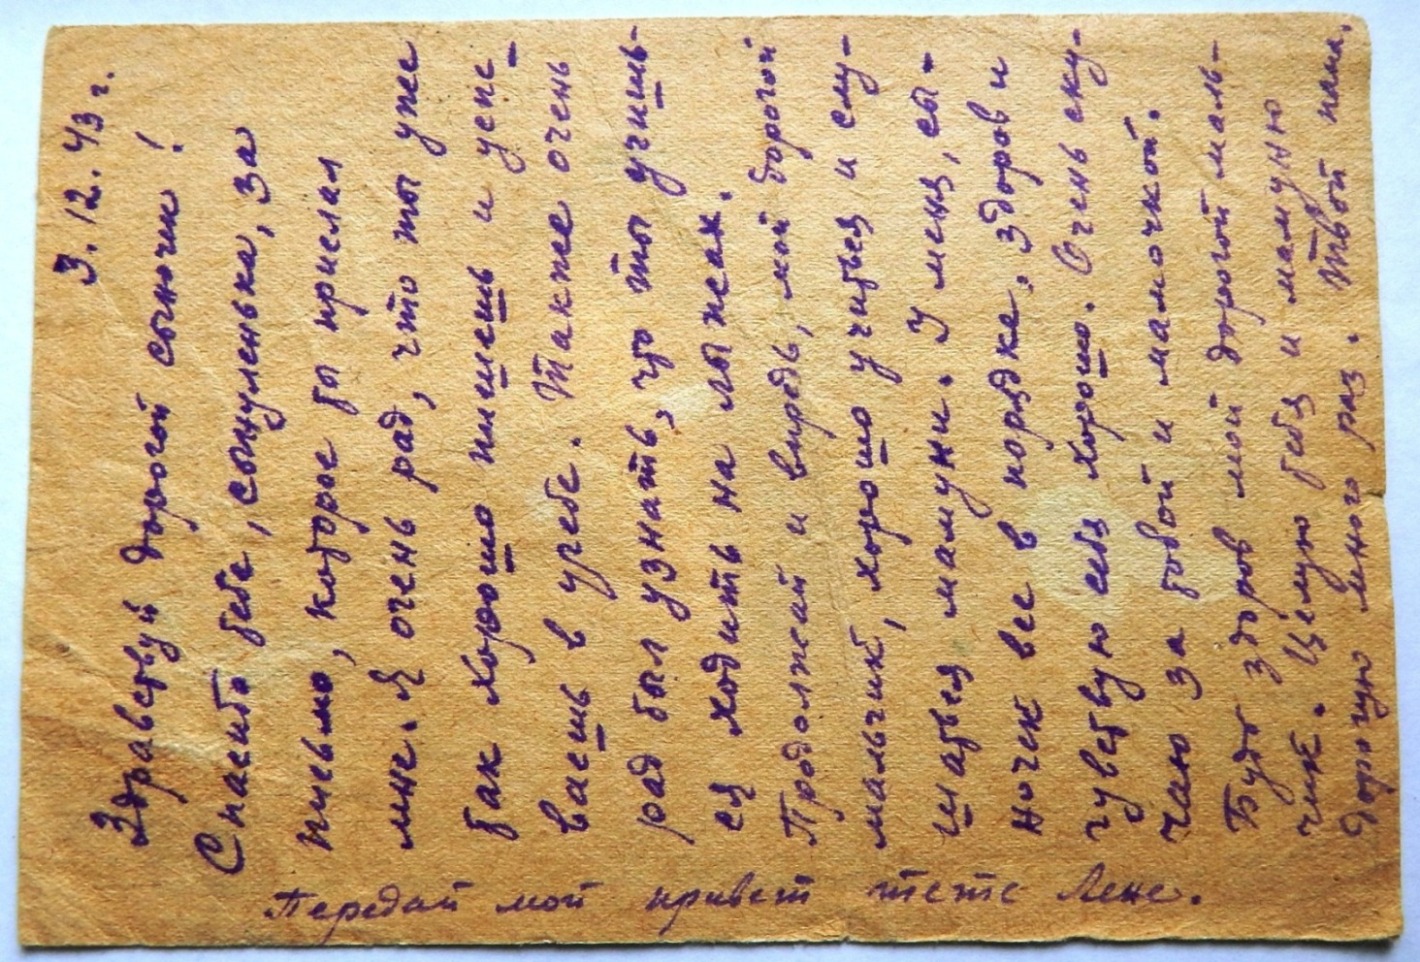 3.12.43 г.
Здравствуй дорогой сыночик!
Спасибо тебе, сынуленька, за
письмо, которое ты прислал
мне. Я очень рад, что ты уже
так хорошо пишешь и успе-
ваешь в учебе. Также очень
рад был узнать, что ты учишь-
ся ходить на лыжах.
Продолжай и впредь, мой дорогой
мальчик, хорошо учиться и слу-
шаться мамуни. У меня, сы-
ночек все в порядке, здоров и
чувствую себя хорошо. Очень ску-
чаю за тобой и мамочкой.
Будь здоров мой дорогой маль-
чик. Целую тебя и мамуню
дорогую много раз. Твой папа.
Передай мой привет тете Лене.